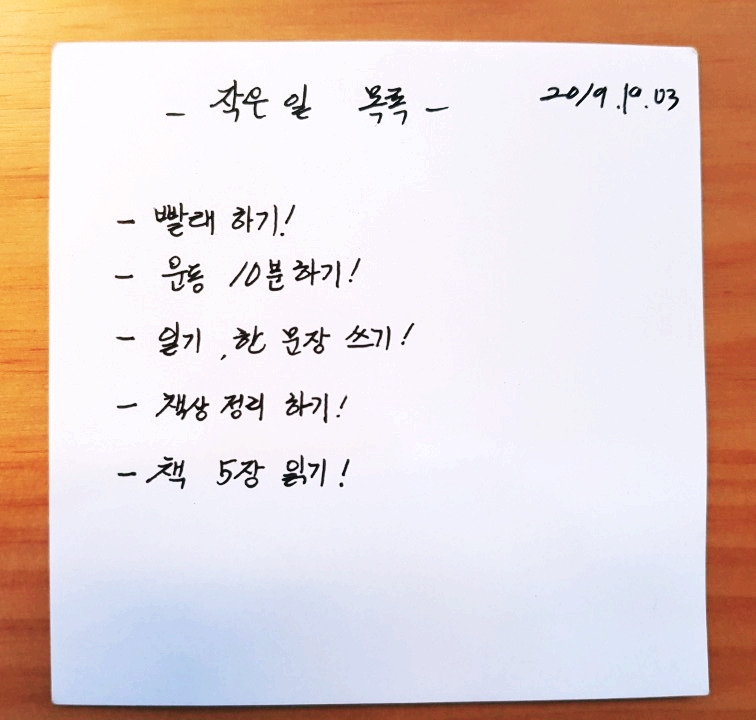 - 작은 일 목록 - 2019.10.03
- 빨래 하기!
- 운동 10분하기!
- 일기, 한 문장 쓰기!
- 책상 정리 하기!
- 책 5장 읽기!